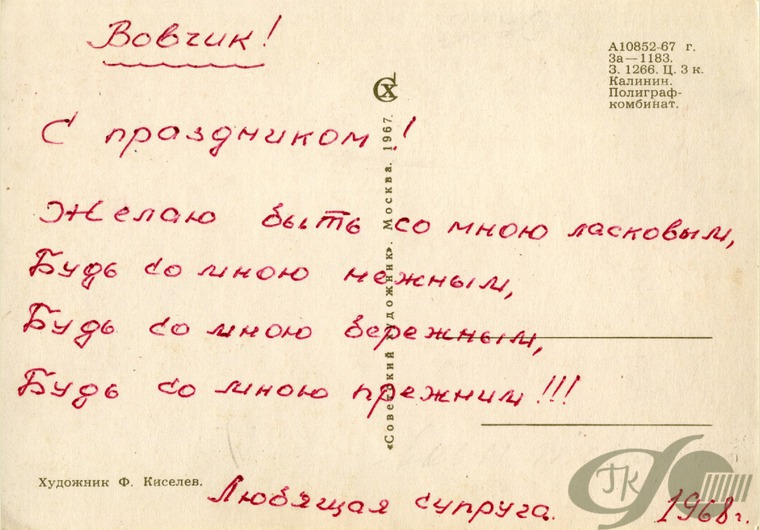 Вовчик!
А10852-67 г.
За—1183.
З. 1266. Ц. 3 к.
Калинин.
Полиграф-
комбинат.
СХ
С праздником!
Желаю быть со мною ласковым,
Будь со мною нежным,
Будь со мною бережным,
Будь со мною прежним!!!
«Советский художник». Москва. 1967.
Художник Ф. Киселев.
Любящая супруга.
1968г.
ГК